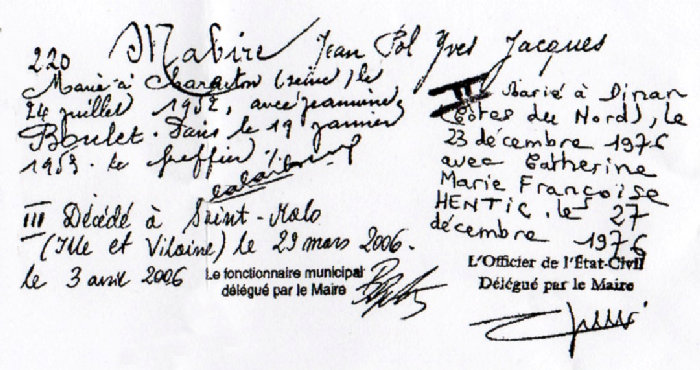 220 Mabire Jean Pol Yves Jacques
Marié à Charenton (Seine) le
24 juillet 1952, avec Jeannine
Boulet. Paris le 19 janvier
1953. le greffier
II Marié à Dinan
(Côtes du Nord), le
23 décembre 1976
avec Catherine
Marie Françoise
HENTIC. le 27
décembre 1976
L'Officier de l'État-Civil
Délégué par le Maire
III Décédé à Saint-Malo
(Ille et Vilaine) le 29 mars 2006.
le 3 avril 2006
Le fonctionnaire municipal
délégué par le Maire